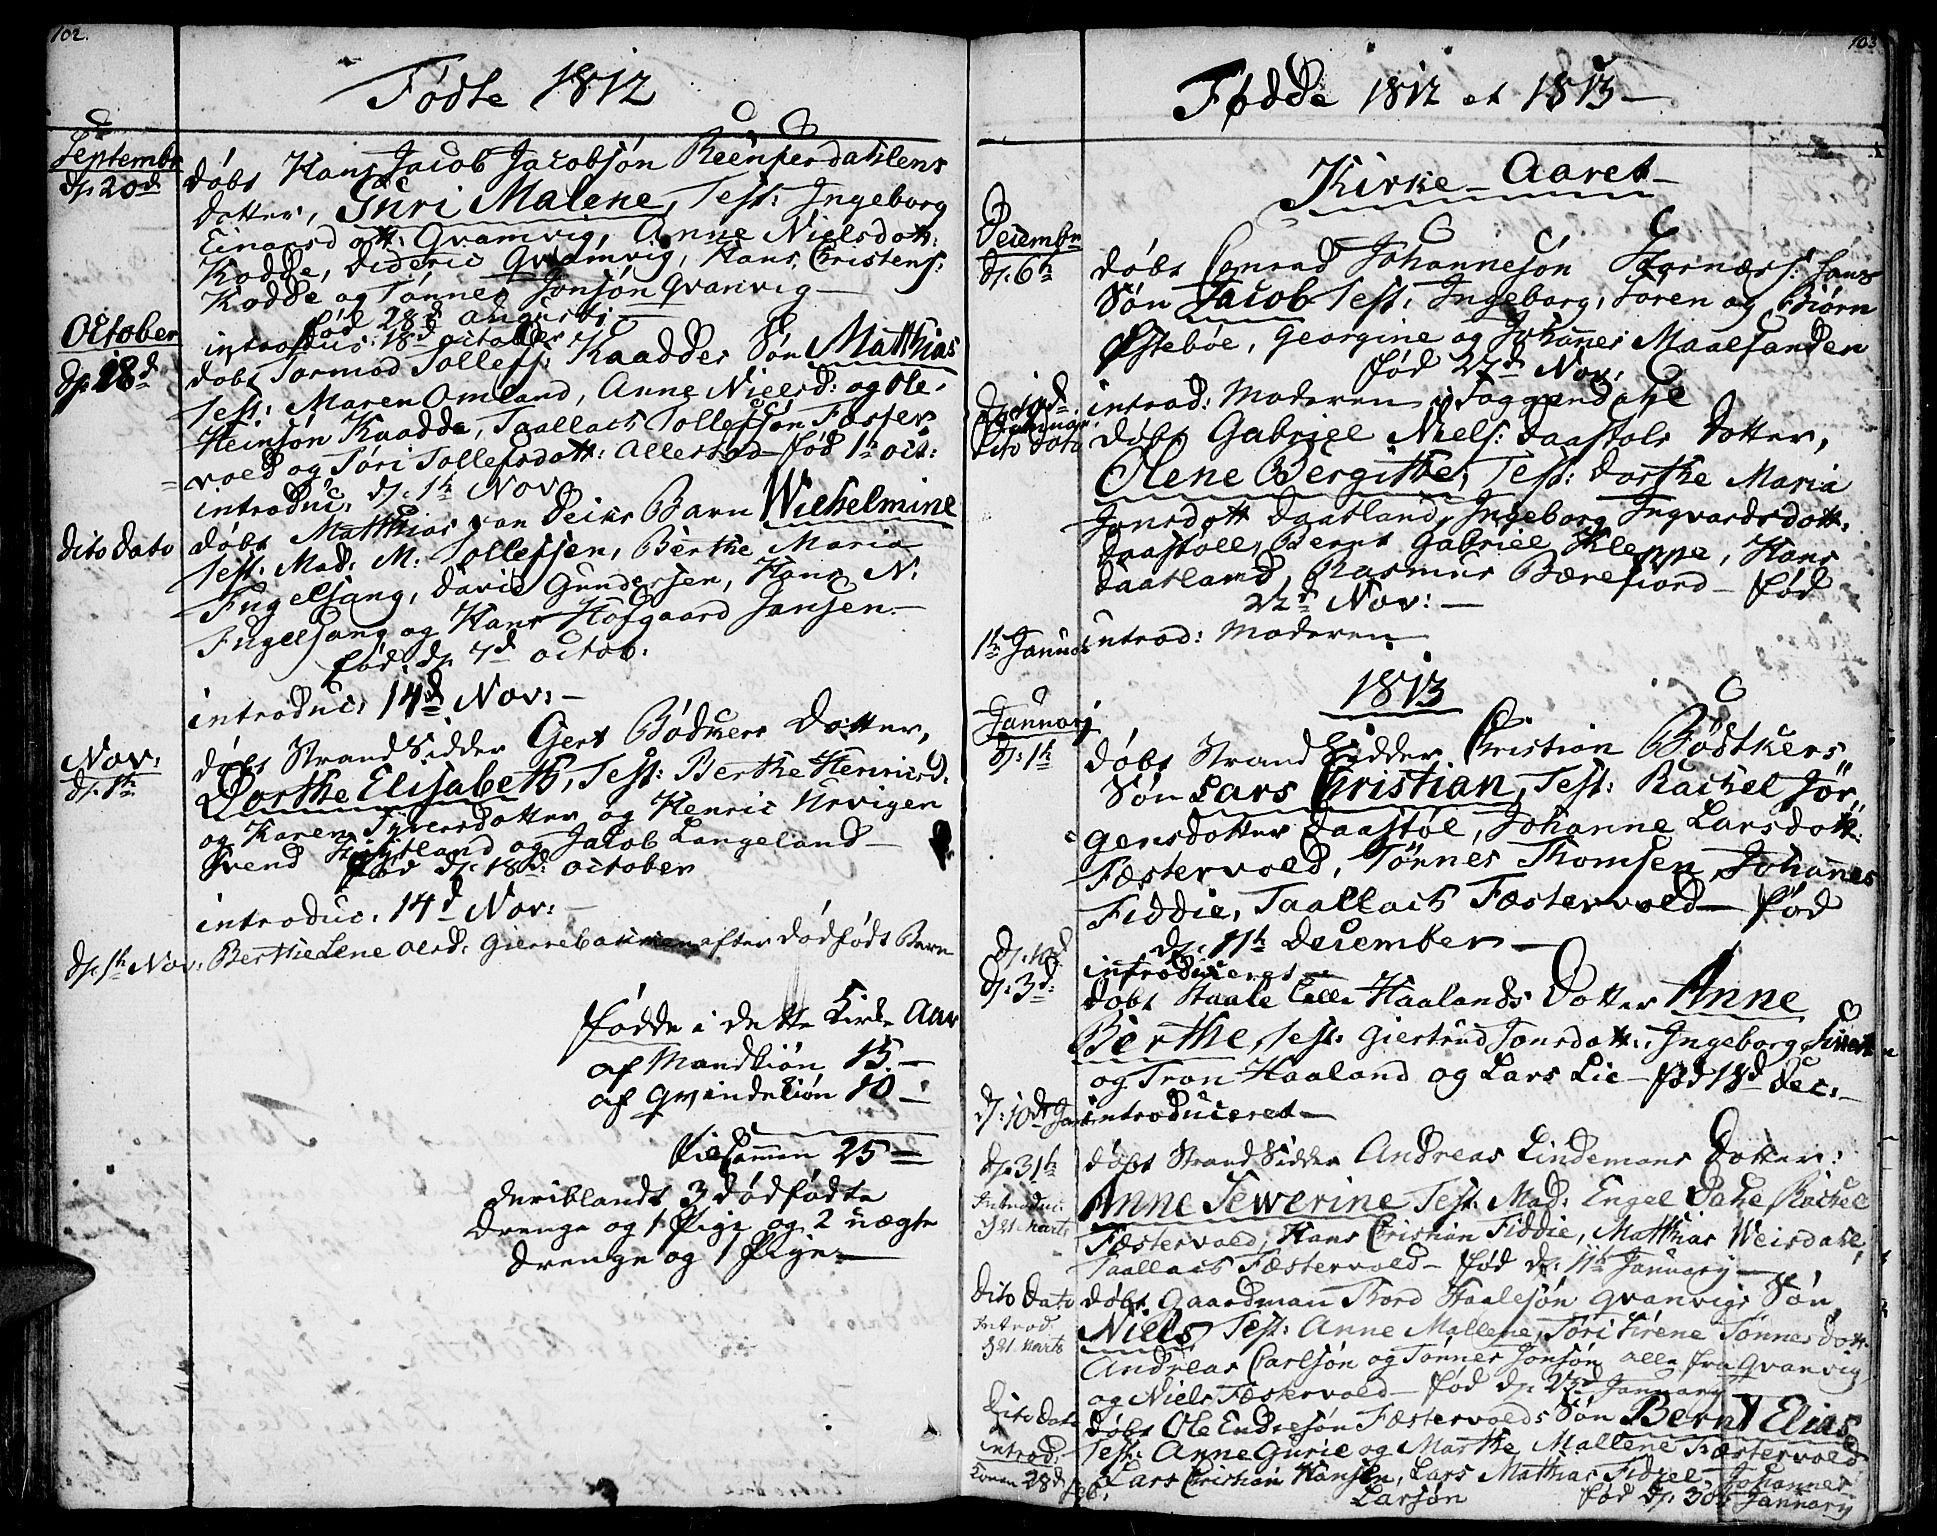 102.
Fødte 1812
Septembr
dƷ. 20d
døbt Hans Jacob Jacobsøn Reenperdahlens
dotter, Guri Malene, Test: Ingeborg
Einarsdott: Qvamvig, Anne Nielsdott:
Kodde, Dideric Qvamvig, Hans Christens:
Kodde og Tønnes Jonsøn Qvanvig —
fød 28d Augusti —
introduc: 18d october
October
dƷ. 18d
døbt Tormod Tollefs: Kaaddes Søn Matthias
Test: Maren Omland, Anne Nielsd: og Ole
Heinsøn Kaadde, Taallach Tollefsøn Fæster
vold og Tøri Tollefsdott: Allestad — fød 1h oct:
introduc: dƷ. 1h Nov
dito dato
døbt Matthias van Deiks Barn Wilhelmine
Test: Mad: M: Tollefsen, Berthe Maria
Fugelsang, David Gundersen, Hans N:
Fugelsang og Hans Hofgaard Jansen. —
fød. dƷ 7d octob:
introduc: 14d Nov: —
Nov:
dƷ. 1h
døbt StrandSidder Gert Bødkers Dotter,
Dorthe Elisabeth, Test: Berthe Henricsd:
og Karen Syversdotter og Henric Urvigen
Svend og Jacob Langeland —
fød dƷ. 18d: october
introduc. 14d Nov: —
dƷ. 1h Nov: Berthe Lene Olsd: efter dødfødt Barn
fødde i dette Kirke Aar
af Mandkiøn 15. —
af Qvindekiøn 10 —
tilSammen 25 —
deriblandt 3 dødfødte
drenge og 1 Pige og 2 uægte
drenge og 1 Pige. —
103
Fødde 1812 et 1813 —
Kirke-Aaret —
Decembr
dƷ. 6h
døbt Conrad Johannesøn Hans
Søn Jacob Test: Ingeborg, Soren og Biørn
Østebøe, Georgine og Johanes Maalsanden
fød 27d Nov:
introd: Moderen i Foggendahl
dito dato
døbt Gabriel Niels: daastøls dotter,
Olene Bergitthe, Test: Dorthe Maria
Jonsdott daatland, Ingeborg Ingvardsdott:
daastøll, Bernt Gabriel Kleppe, Hans
daatland, Rasmus Bærefiord — fød
22d Nov: —
1h Januar introd: Moderen
1813
January
dƷ: 1h
døbt StrandSidder Christian Bødtkers
Søn Lars Christian, Test: Rachel Jør„
gensdotter daastøl, Johanne Larsdott:
Fæstervold, Tønnes Thomsen, Johanes
Fiddie, Taallach Fæstervold — fød
dƷ. 11h december —
dƷ: 10d
introduceret —
dƷ: 3d:
døbt Staale Haalands Dotter Anne
Berthe, Test: Giertrud Jonsdott:, Ingeborg
og Tron Haaland og Lars Lie — fød 18d Dec: —
dƷ: 10d Jan: introduceret —
dƷ. 31h
døbt StrandSidder Andreas Lindemans Dotter:
Introduc:
Ʒ 21 Marts
Anne Sewerine Test: Mad: Engel Dahl, Rachel
Fæstervold, Hans Christian Fiddie, Matthias Weisdahl,
Taallach Fæstervold — fød dƷ: 11h January —
dito dato
døbt Gaardman Tord Staalesøn Qvanvigs Søn
Introd.
Ʒ 21. Marts
Niels Test: Anne Mallene, Tøri Sirene Tønnesdott.
Andreas Carlsøn og Tønnes Jonsøn alle fra Qvanvig,
og Niels Fæstervold — fød dƷ. 23d January
dito dato
døbt Ole Endresøn Fæstervolds Søn Bernt Elias
introd:
Konen 28d feb:
Test: Anne Gurie og Marthe Mallene Fæstervold
Lars Christian Hansen, Lars Mathias Fidiel, Johannes
Larsøn fød dƷ. 30t January